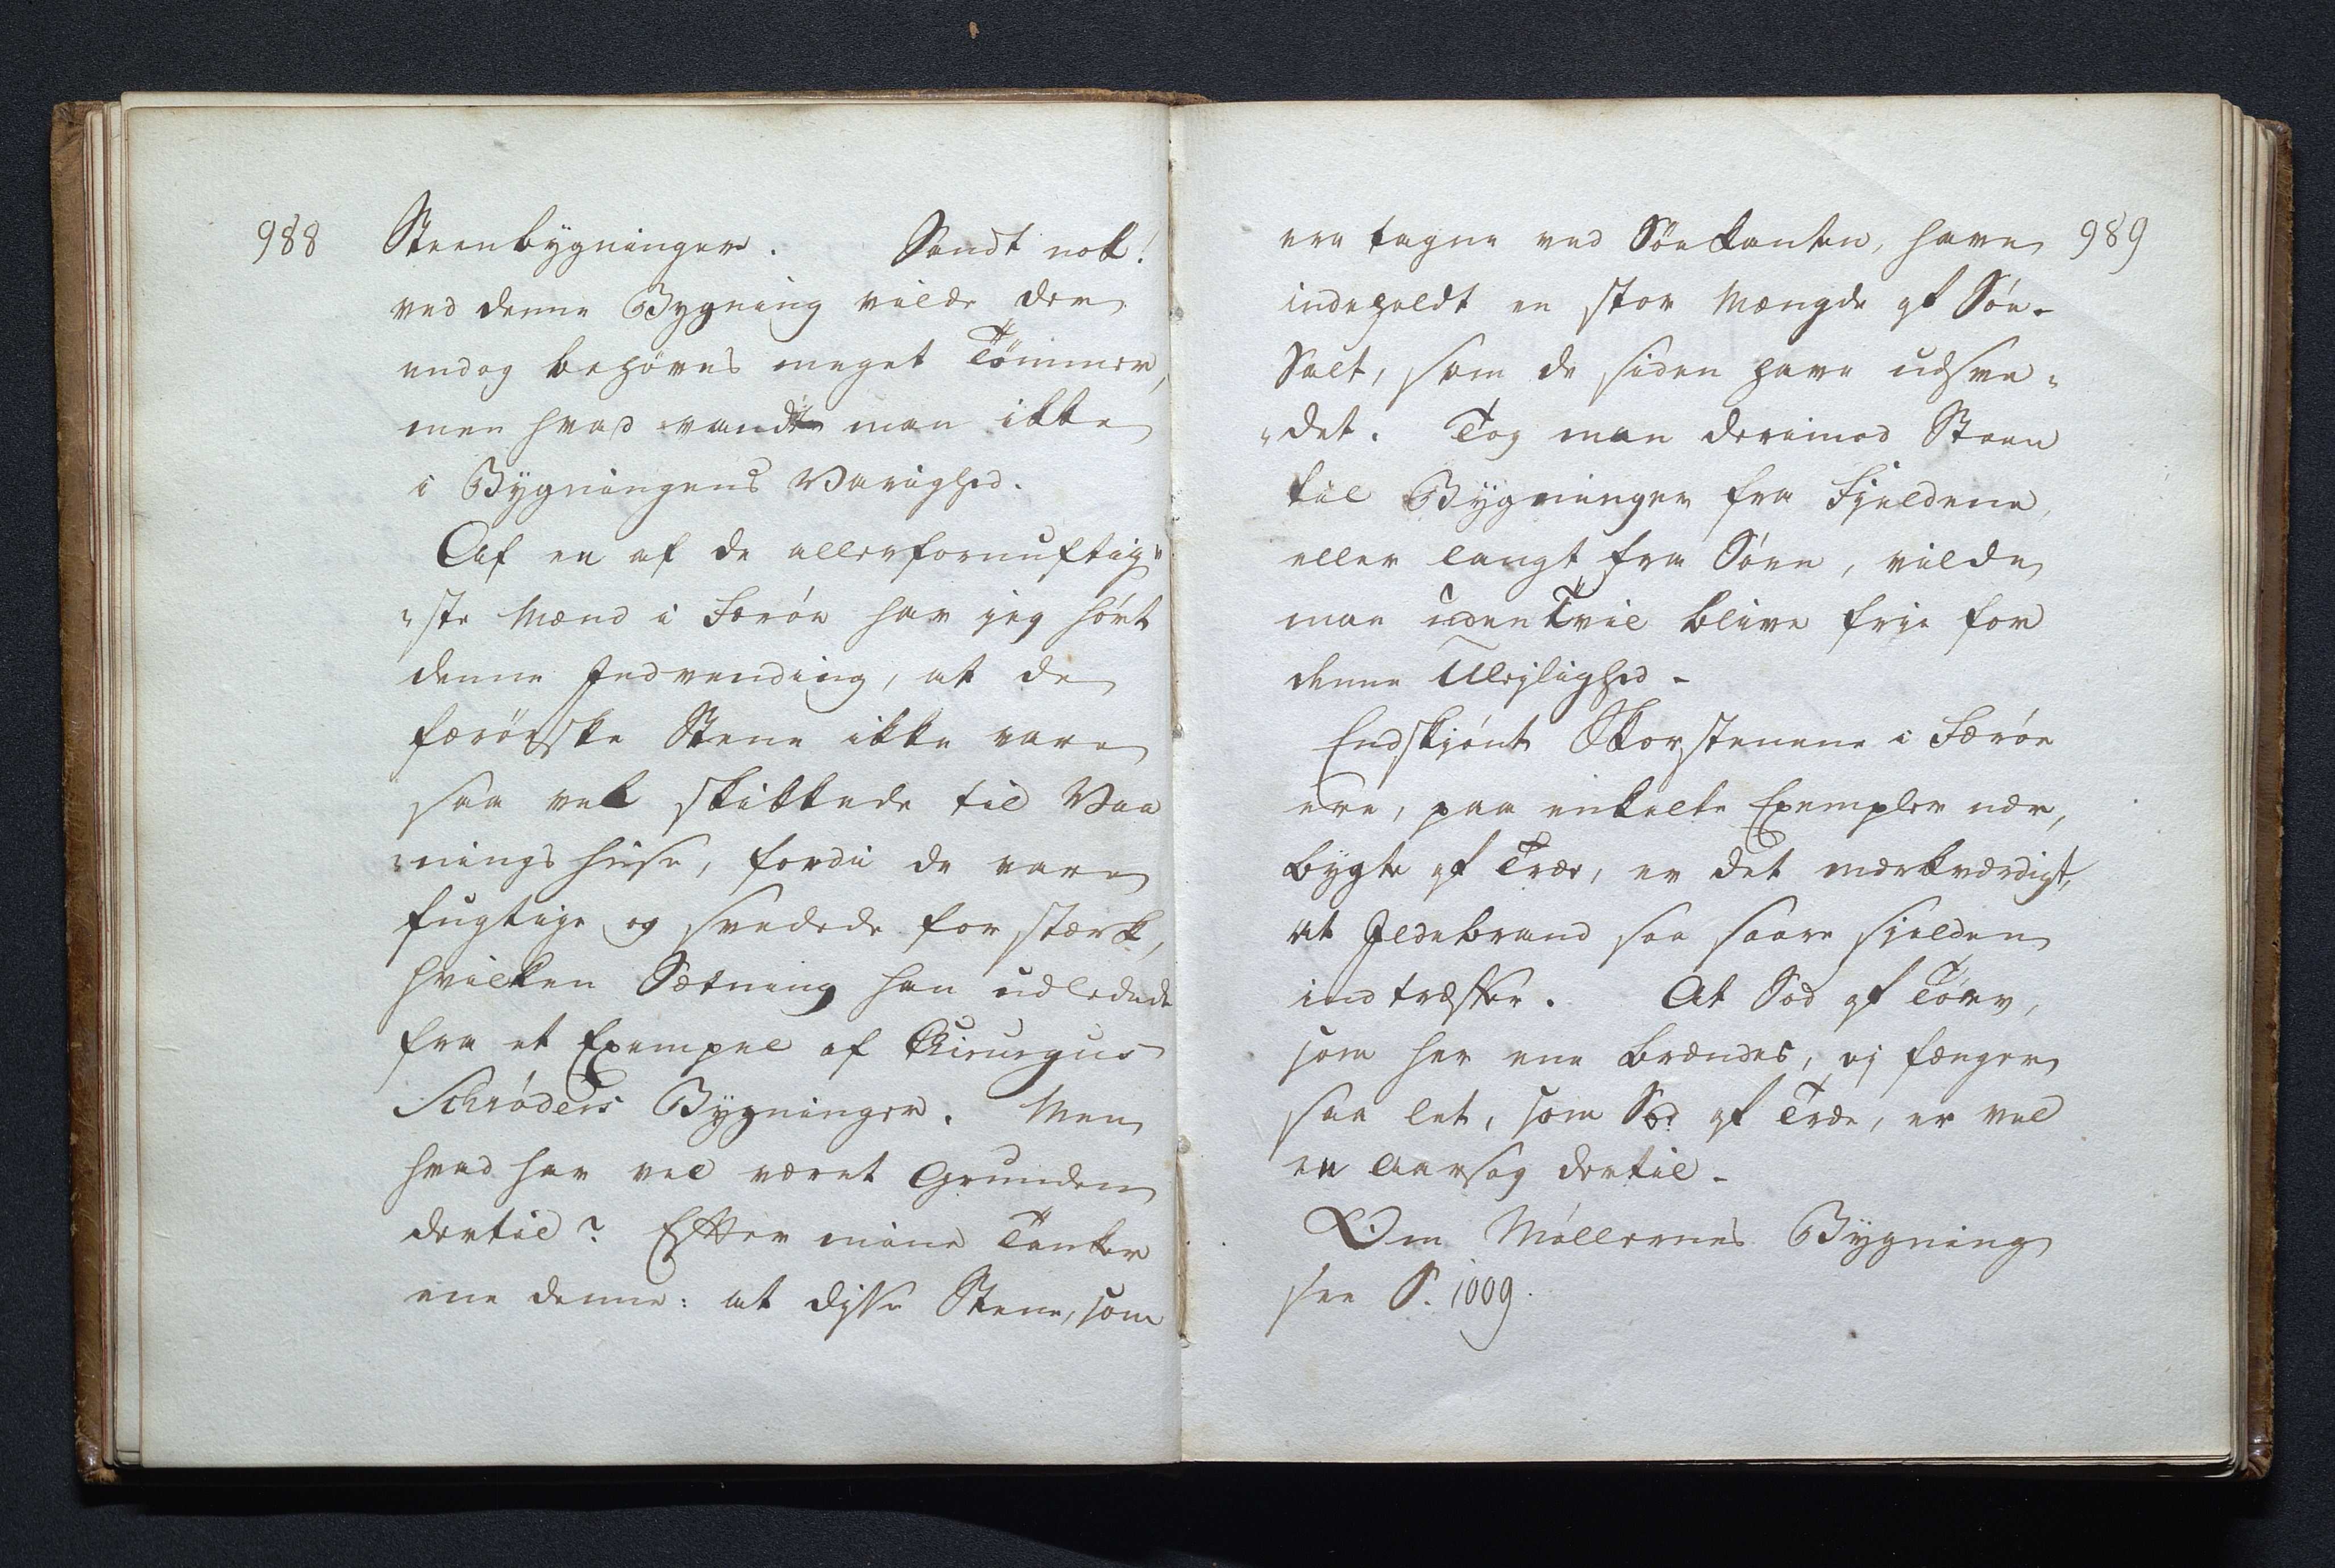 988
Steenbygninger. Sandt nok!
ved denne Bygning vilde der
endog behöves meget Tömmer,
men hvad vandt man ikke
i Bygningens Varighed.
Af en af de allerfornuftig-
-ste Mænd i Færöe har jeg hört
denne Indvending, at de
færöeske Stene ikke vare
saa vel skikkede til Vaa
-nings huse, fordi de vare
fugtige og svedede for stærk,
hvilken Sætning han udledede
fra et Exempel af Chirurgus
Schröders Bygninger. Men
hvad har vel været Grunden
dertil? Efter mine Tanker
ene denne: at disse Stene, som
989
ere tagne ved Söekanten, have
indeholdt en stor Mængde af Söe-
Salt, som de siden have udsve-
-det. Tog man derimod Steen
til Bygninger fra Fjeldene,
eller langt fra Söen, vilde
man uden Tvil blive frie for
denne Ulejlighed-
Endskjönt Skorstenene i Færöe
ere, paa enkelte Exempler nær,
bygte af Træe, er det mærkværdigt,
at Ildebrand saa saare sjelden
indtræffer. At Sod af Törv,
som her ene brændes, ej fænger
saa let, som Sod af Træe, er vel
en Aarsag dertil-
Om Möllernes Bygning
see S. 1009.